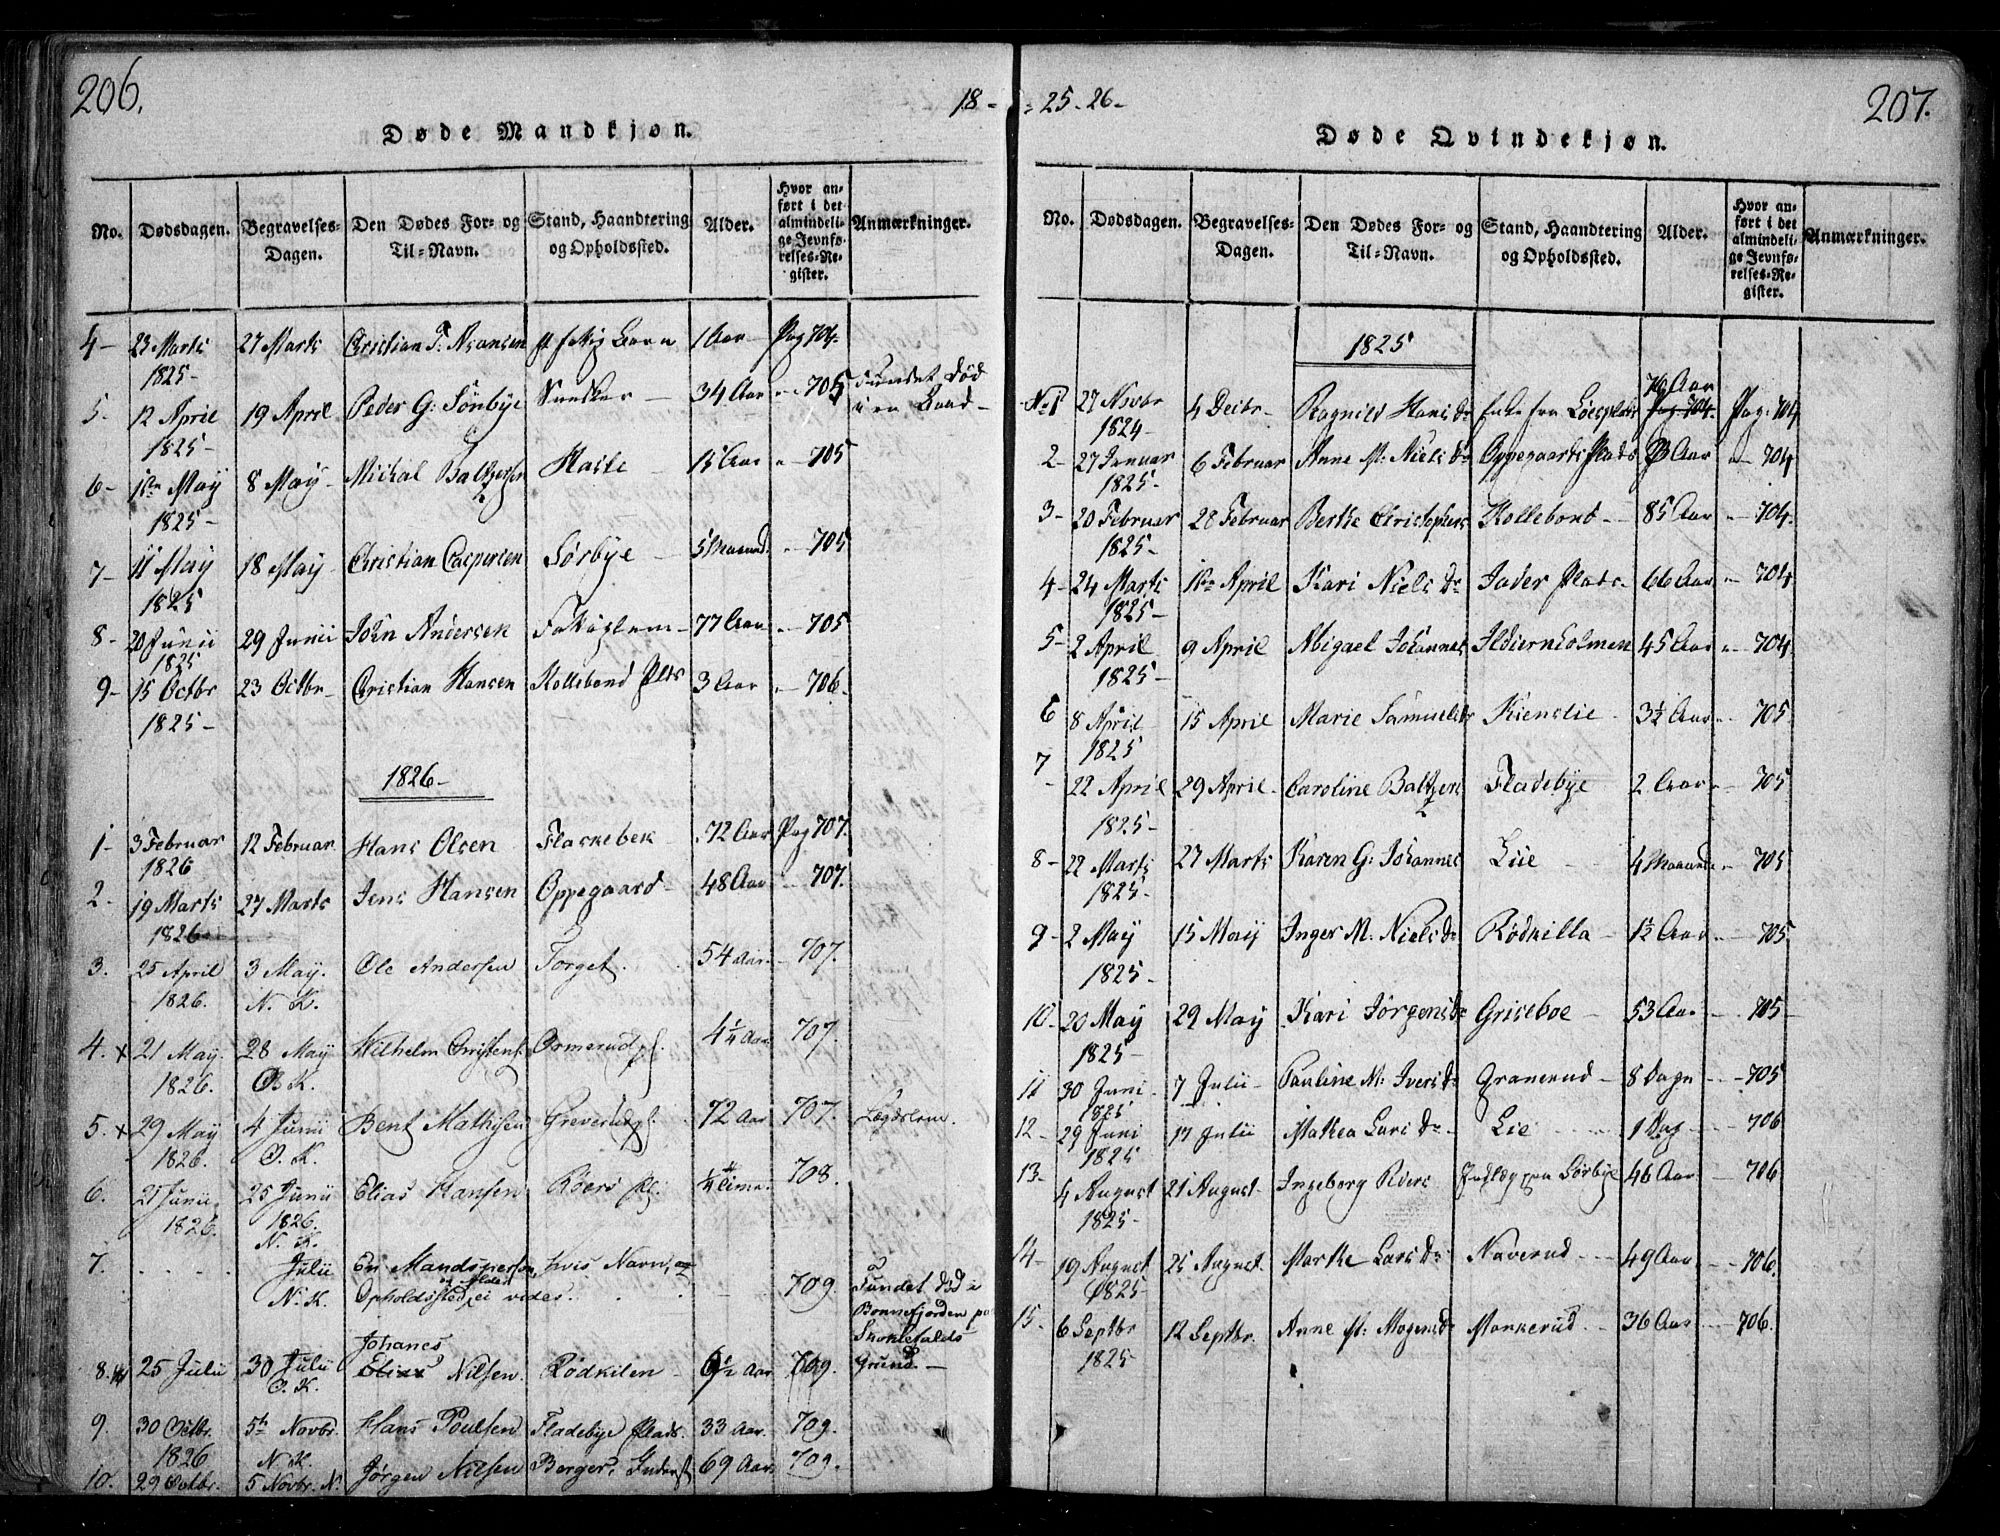 206.
18-
Døde Mandkjøn.
No. Dødsdagen. Begravelses-Dagen. Den Dødes For- og Til-Navn. Stand, Haandtering og Opholdssted. Alder. Hvor anført i det almindelige Jevnførelses-Register. Anmærkninger.
4- 23 Marts 27 Marts Christian T. 1 Aar Pag 704.
1825-
5. 12 April 19 April Peder G: Sønbye 34 Aar " 705 Fundet død
1825-
6- 8 May- Michal Baltzersen 15 Aar " 705
1825-
7- 11 May 18 May Christian Caspersen Sørbye 5 Maaned. " 705
1825
8- 20 Junii 29 Junii John Andersen 77 Aar " 705
1825
9- 15 Octbr 23 Octbr Christian Hansen Kollebond Plds 3 Aar " 706.
1825-
1826-
1- 3 Februar 12 Februar Hans Olsen Flaskebek 72 Aar Pag 707.
1826
2- 19 Marts 27 Marts Jens Hansen Oppegaard- 48 Aar " 707.
1826
3. 25 April 3 May. Ole Andersen Torget. 54 Aar. 707.
1826. N. K.
4. x 21 May. 28 May Wilhelm Christens. Ormerud pl. 4½ Aar 707.
1826. K.
5. x 29 May 4 Junii Bent Mathisen Greverudpl. 72 Aar 707. Lægdslem.
1826. O. K.
6. 21 Junii 25 Junii Elias Hansen Roers pl. 708.
1826. 1826.
N. K.
7. Julii En Mandsperson, hvis Navn, og
N. K. Opholdssted ei vides. 709. Fundet død i
og Alder
Bonnefjorden paa
Johanes Skoklefalds
8. 25 Julii 30 Julii Elias Nilsen. Rødkilen 6½ Aar 709. Grund.-
O. K.
9. 30 Octbr. 5te Novbr. Hans Poulsen Fladebye Plads. 33 Aar. 709.
1826 N. K.
10. 29 Octbr. 5 Novbr. N. Jørgen Nilsen Berger, Inderst 69 Aar 709.
25-26-
207.
Døde Qvindekjøn.
No. Dødsdagen. Begravelses-Dagen. Den Dødes For- og Til-Navn. Stand, Haandtering og Opholdssted. Alder. Hvor anført i det almindelige Jevnførelses-Register. Anmærkninger.
1825
76 Aar
No 1 27 Novbr 4 Decbr- Ragnild Hansdr Enke fra Pag 704. Pag: 704
1824-
2- 27 Januar 6 Februar Anne M: Nielsdr Oppegaards Plads Aar " 704
1825-
3- 20 Februar 28 Februar Berthe Christophers Kollebond- 85 Aar " 704.
1825-
4- 24 Marts April Kari Nielsdr Plads- 66 Aar " 704
1825-
5- 2 April 9 April Abigael Johannes Ildiernholmen 45 Aar " 704
1825-
6 8 April 15 April Marie Samuelsdr Kienslie 3½ Aar " 705
1825
7- 22 April 29 April- Caroline Baltzers Fladebye 2 Aar " 705
1825-
8- 22 Marts 27 Marts Karen G: Johannes Liie 4 Maaneder 705
1825-
9- 2 May 15 May Inger M. Nielsdr Rødkilla 1½ Aar 705
1825-
10- 20 May 29 May Kari Jørgensdr Griseboe- 53 Aar 705
1825-
11 30 Juni 7 Julii Pauline M: Iversdr Granerud- 8 Dage 705
1825
12- 29 Juni 17 Julii Mathea Larsdr Lie 1 Dag 706
1825
13- 4 August 21 August- Ingeborg Fra Sørbye 46 Aar 706
1825-
14- 19 August 25 August. Marthe Larsdr Naverud 49 Aar 706.
1825-
15. 6 Septbr 12 Septbr. Anne M: Mogensdr Monkerud 36 Aar 706.
1825-